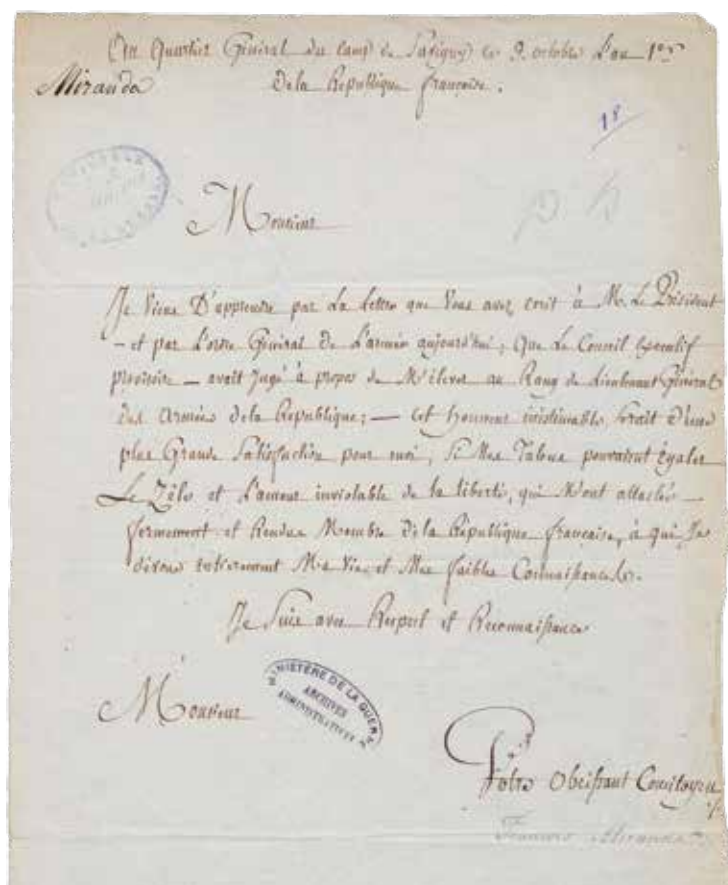 Au Quartier Général du camp de Savigny ce 9. octobre L'an 1er
Miranda Dela Republique française.
18
Monsieur
Je Viens D'apprendre par La lettre que Vous avez ecrit à M. Le Président
– et par L'ordre Général De L'armée aujourd'hui; Que Le Conseil Executif
provisoire — avait Jugé à propos de M'élever au Rang de Lieutenant Général
des Armées dela Republique; — cet honneur inéstimable, serait d'une
plus Grande Satisfaction pour moi, Si Mes Talens pouvaient Egaler
Le Zéle et L'amour inviolable de la liberté, qui M'ont attachés —
fermement et Rendus Membre dela République française, à qui Je
dévoue entierement Ma Vie, et Mes faibles Connaissances.
Je Suis avec Respect et Reconnaissance
Monsieur
MINISTÈRE DE LA GUERRE
ARCHIVES
ADMINISTRATIVES
Votre Obeissant Concitoyen
Francois Miranda